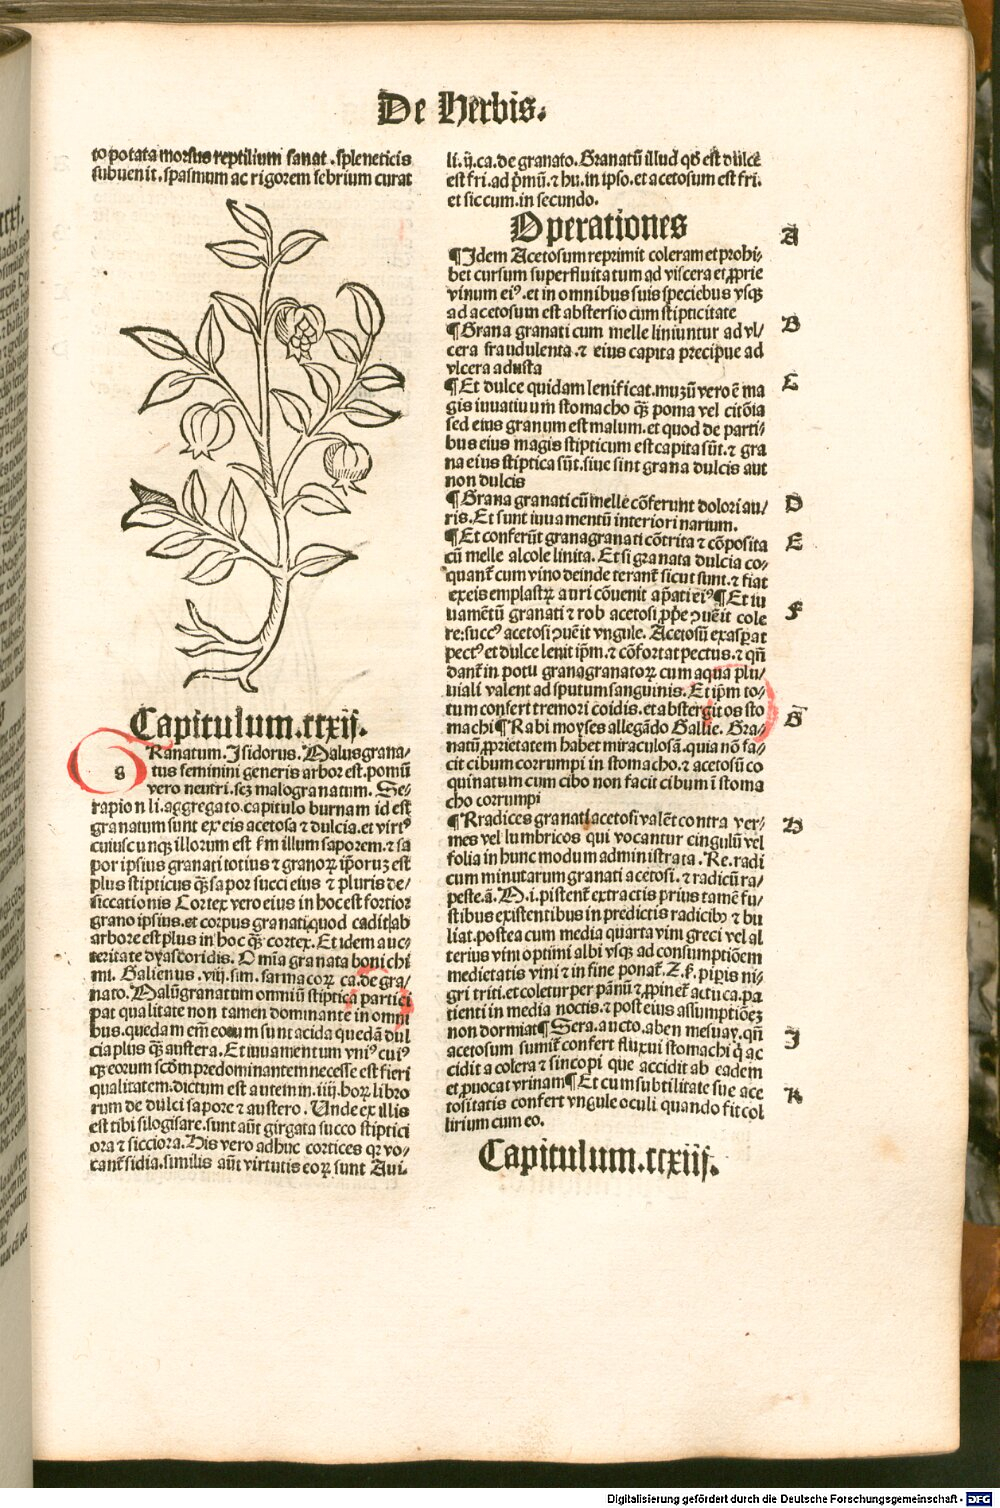 De Herbis.
to potata morsus reptilium sanat. spleneticis
subuenit. spasmum ac rigorem febrium curat
Capitulum.ccxij.
g
Ranatum. Isidorus. Malusgrana-
tus feminini generis arbor est. pomū
vero neutri. scꝫ malogranatum. Se-
rapion li. aggregato. capitulo burnam id est
granatum sunt ex eis acetosa ⁊ dulcia. et virtꝰ
cuiuscunqꝫ illorum est fm illum saporem. ⁊ sa
por ipsius granati totius ⁊ granoꝝ ip̄oruꝫ est
plus stipticus qꝫ sapor succi eius ⁊ pluris de/
siccationis Cortex vero eius in hoc est fortior
grano ipsius. et corpus granati quod cadit ab
arbore est plus in hoc qꝫ cortex. Et idem auc-
teritate dyascoridis. Omīa granata boni chi
mi. Galienus. viij. sim. farmacoꝝ ca. de gra/
nato. Malūgranatum omniū stiptica partici
pat qualitate non tamen dominante in omni
bus. quedam em̄ eorum sunt acida quedā dul
cia plus qꝫ austera. Et iuuamentum vniꝰ cuiꝰ
qꝫ eorum scd̄m predominantem necesse est fieri
qualitatem. dictum est autem in. iiij. hoꝝ libro
rum de dulci sapore ⁊ austero. Unde ex illis
est tibi silogisare. sunt aūt girgata succo stiptici
ora ⁊ sicciora. His vero adhuc cortices qꝛ vo-
cant̄ sidia. similis aūt virtutis eoꝝ sunt Aui-
li. ij. ca. de granato. Granatū illud qd̄ est dulce
est fri. ad p̄mū. ⁊ hu. in ipso. et acetosum est fri.
et siccum. in secundo.
Operationes
A
¶Idem Acetosum reprimit coleram et prohi-
bet cursum superfluitatum ad viscera et ꝓprie
vinum eiꝰ. et in omnibus suis speciebus vsqꝫ
ad acetosum est abstersio cum stipticitate
B
¶Grana granati cum melle liniuntur ad vl-
cera fraudulenta. ⁊ eius capita precipue ad
vlcera adusta
C
¶Et dulce quidam lenificat. muzū vero ē ma
gis iuuatiuum stomacho qꝫ poma vel citōia
sed eius granum est malum. et quod de parti-
bus eius magis stipticum est capita sūt. ⁊ gra
na eius stiptica sūt. siue sint grana dulcis aut
non dulcis
D
¶Grana granati cū melle cōferunt dolori au/
ris. Et sunt iuuamentū interiori narium.
E
¶Et conferūt granagranati cōtrita ⁊ cōposita
cū melle alcole linita. Et si granata dulcia co-
quant̄ cum vino deinde terant̄ sicut sunt. ⁊ fiat
ex eis emplastꝝ auri cōuenit ap̄ati eiꝰ¶Et iu
F
uamētū granati ⁊ rob acetosi ꝓp̄e ꝯuēit cole
re: succꝰ acetosi ꝯuēit vngule. Acetosū exasp̄at
pectꝰ et dulce lenit ip̄m. ⁊ cōfortat pectus. ⁊ qn̄
dant̄ in potu granagranatoꝝ cum aqua plu/
uiali valent ad sputum sanguinis. Et ip̄m to-
tum confert tremori coidis. et abstergit os sto
G
machi¶Rabi moyses allegādo Gallie. Gra-
natū ꝓprietatem habet miraculosā. quia nō fa-
cit cibum corrumpi in stomacho. ⁊ acetosū co
quinatum cum cibo non facit cibum ī stoma
cho corrumpi
H
¶Rradices granati acetosi valēt contra ver-
mes vel lumbricos qui vocantur cingulū vel
folia in hunc modum administrata. Re. radi
cum minutarum granati acetosi. ⁊ radicū ra-
peste. ā. M. i. pistent̄ extractis prius tamē fu-
stibus existentibus in predictis radicibꝫ ⁊ bu
liat. postea cum media quarta vini greci vel al
terius vini optimi albi vsqꝫ ad consumptiōem
medietatis vini ⁊ in fine ponat̄. Z. ꝭ. pip̄is ni-
gri triti. et coletur per pānū ⁊ ꝓpinet̄ actu ca. pa
tienti in media noctis. ⁊ post eius assumptiōeꝫ
I
non dormiat¶Sera. aucto. aben mesuay. qn̄
acetosum sumit̄ confert fluxui stomachi q̇ ac
cidit a colera ⁊ sincopi que accidit ab eadem
K
et ꝓuocat vrinam¶Et cum subtilitate sue ace
tositatis confert vngule oculi quando fit col
lirium cum eo.
Capitulum.ccxiij.
Digitalisierung gefördert durch die Deutsche Forschungsgemeinschaft - DFG